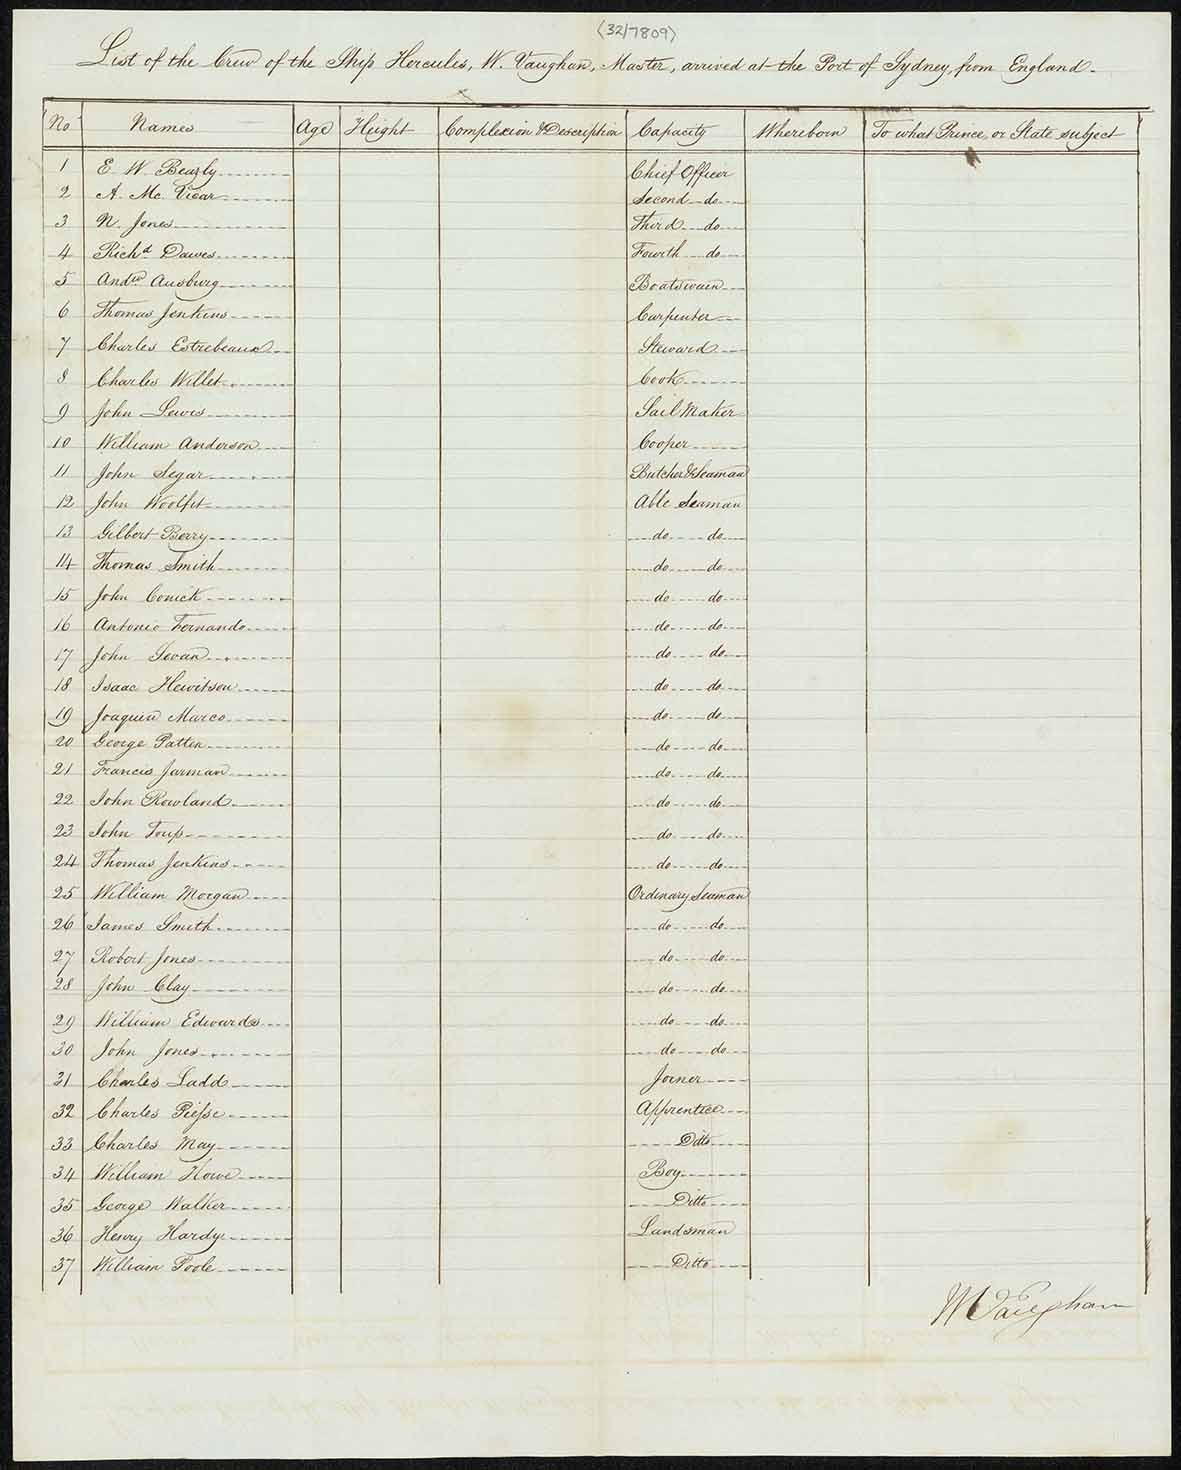 (32/7809)
List of the Crew of the Ship Hercules, W. Vaughan, Master, arrived at the Port of Sydney, from England.
No Names Age Height Complexion & Description Capacity Where born To what Prince or State subject
1 E. W. Beazly Chief Officer
2 A. Mc. Vicar Second do
3 N. Jones Third do
4 Richd Dawes Fourth do
5 Andw Ausburg Boatswain
6 Thomas Jenkins Carpenter
7 Charles Estrebeaux Steward
8 Charles Willet Cook
9 John Lewis Sail Maker
10 William Anderson Cooper
11 John Segar Butcher & Seaman
12 John Woolfit Able Seaman
13 Gilbert Berry do do
14 Thomas Smith do do
15 John Conick do do
16 Antonio Fernando do do
17 John do do
18 Isaac Hewitson do do
19 Joaquin Marco do do
20 George Patten do do
21 Francis Jarman do do
22 John Rowland do do
23 John Toup do do
24 Thomas Jenkins do do
25 William Morgan Ordinary Seaman
26 James Smith do do
27 Robert Jones do do
28 John Clay do do
29 William Edwards do do
30 John Jones do do
31 Charles Ladd Joiner
32 Charles Piesse Apprentice
33 Charles May Ditto
34 William Howe Boy
35 George Walker Ditto
36 Henry Hardy Landsman
37 William Poole Ditto
W Vaughan